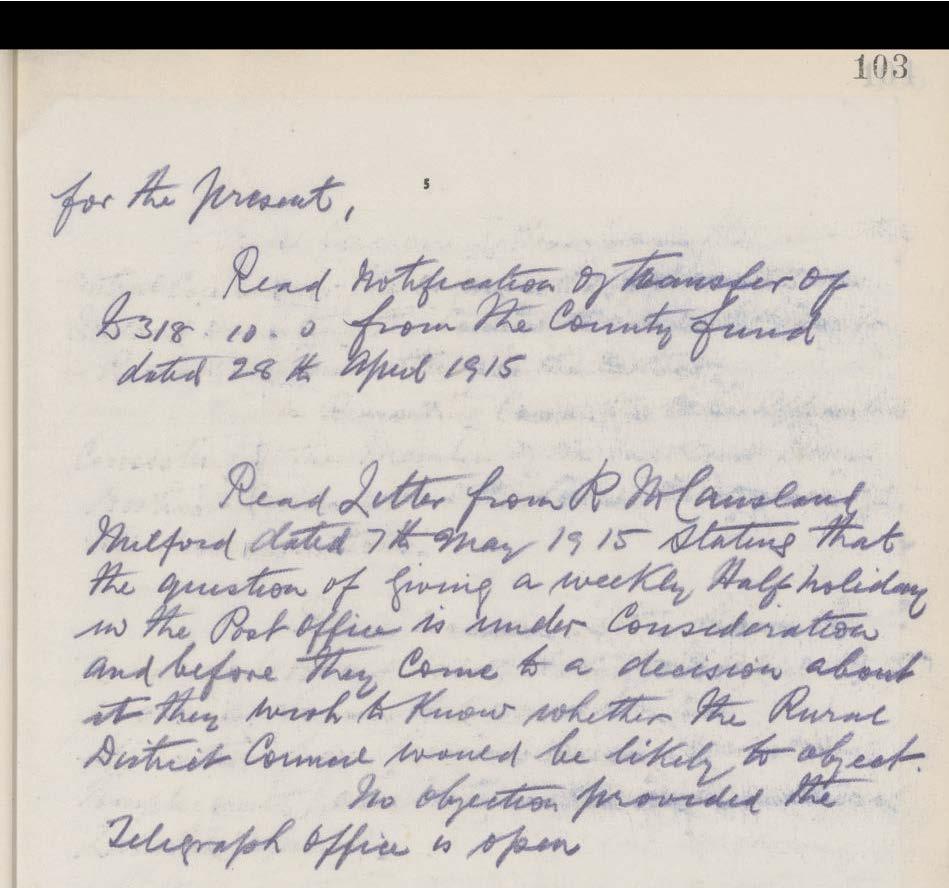 103
5
for the present,
Read Notification of transfer of
£318.10.0 from the County fund
dated 28th April 1915
Read Letter from R McCausland
Milford dated 7th May 1915 Stating that
the question of giving a weekly Half holiday
in the Post Office is under Consideration
and before they Come to a decision about
it they wish to Know whether the Rural
District Council would be likely to object.
No objection provided the
Telegraph Office is open